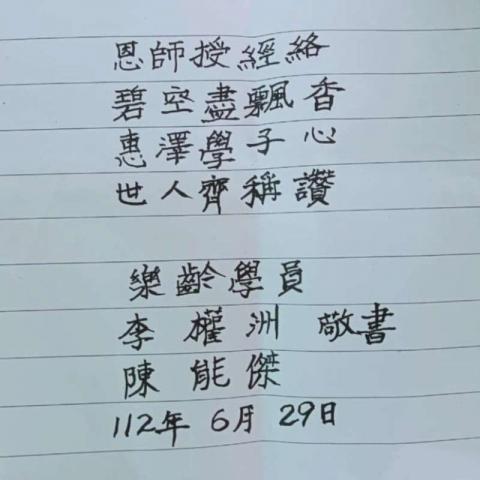 恩師授經絡
碧空盡飄香
惠澤學子心
世人齊稱讚
樂齡學員
李權洲 敬書
陳能傑
112年 6月 29日